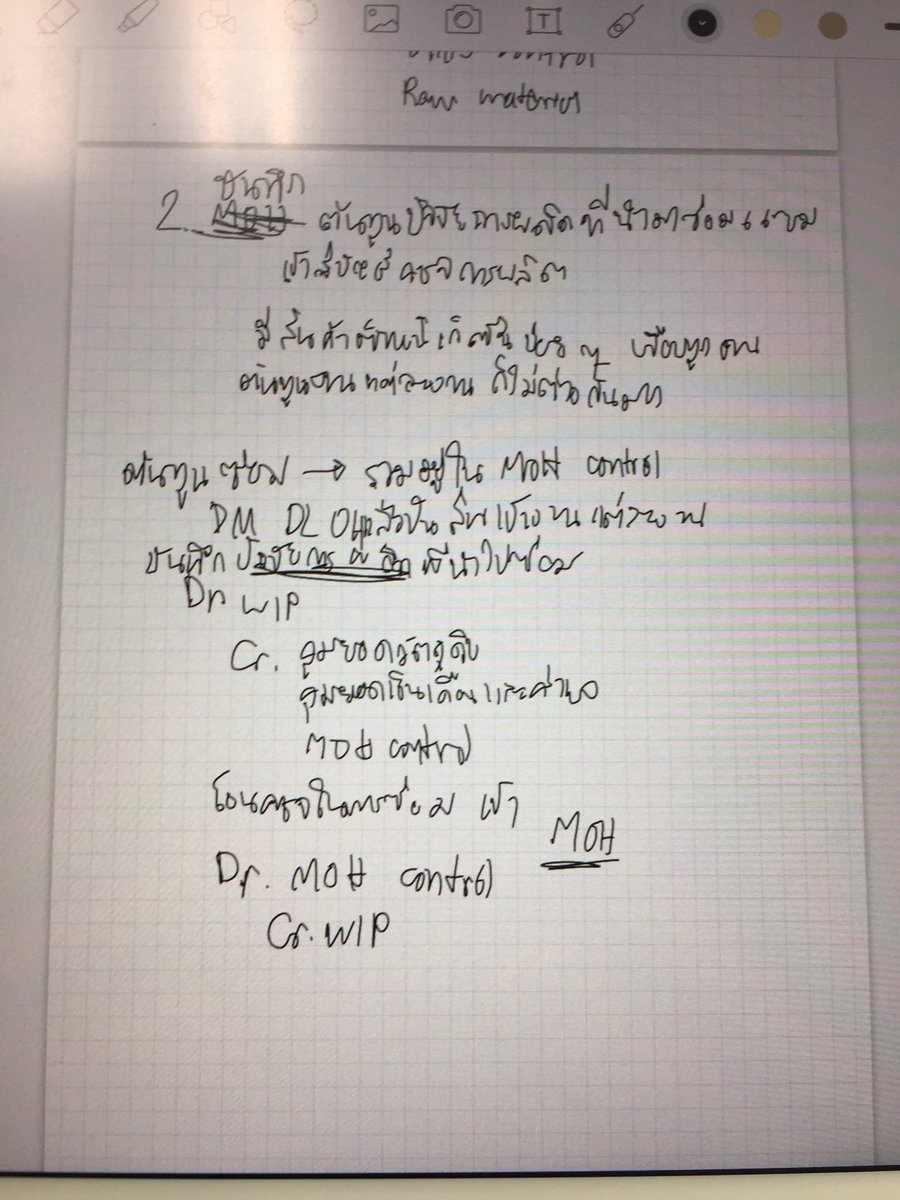 Raw material
บันทึก
2. ต้นทุนปัจจัยการผลิตที่นำมาซ่อมแซม
เข้าสู่บัญชีคชจการผลิต
มีสินค้า เกิดขึ้นบ่อย ๆ เกือบทุกงาน
ต้นทุนงานแต่ละงาน ก็ไม่ต่างกันมาก
ต้นทุนซ่อม → รวมอยู่ใน MOH control
DM DL OH เข้างานแต่ละงาน
บันทึกปัจจัยการผลิตที่นำไปซ่อม
Dr WIP
Cr. คุมยอดวัตถุดิบ
คุมยอดเงินเดือนและค่าแรง
MOH control
โอนคชจในการซ่อม เข้า MOH
Dr. MOH control
Cr. WIP